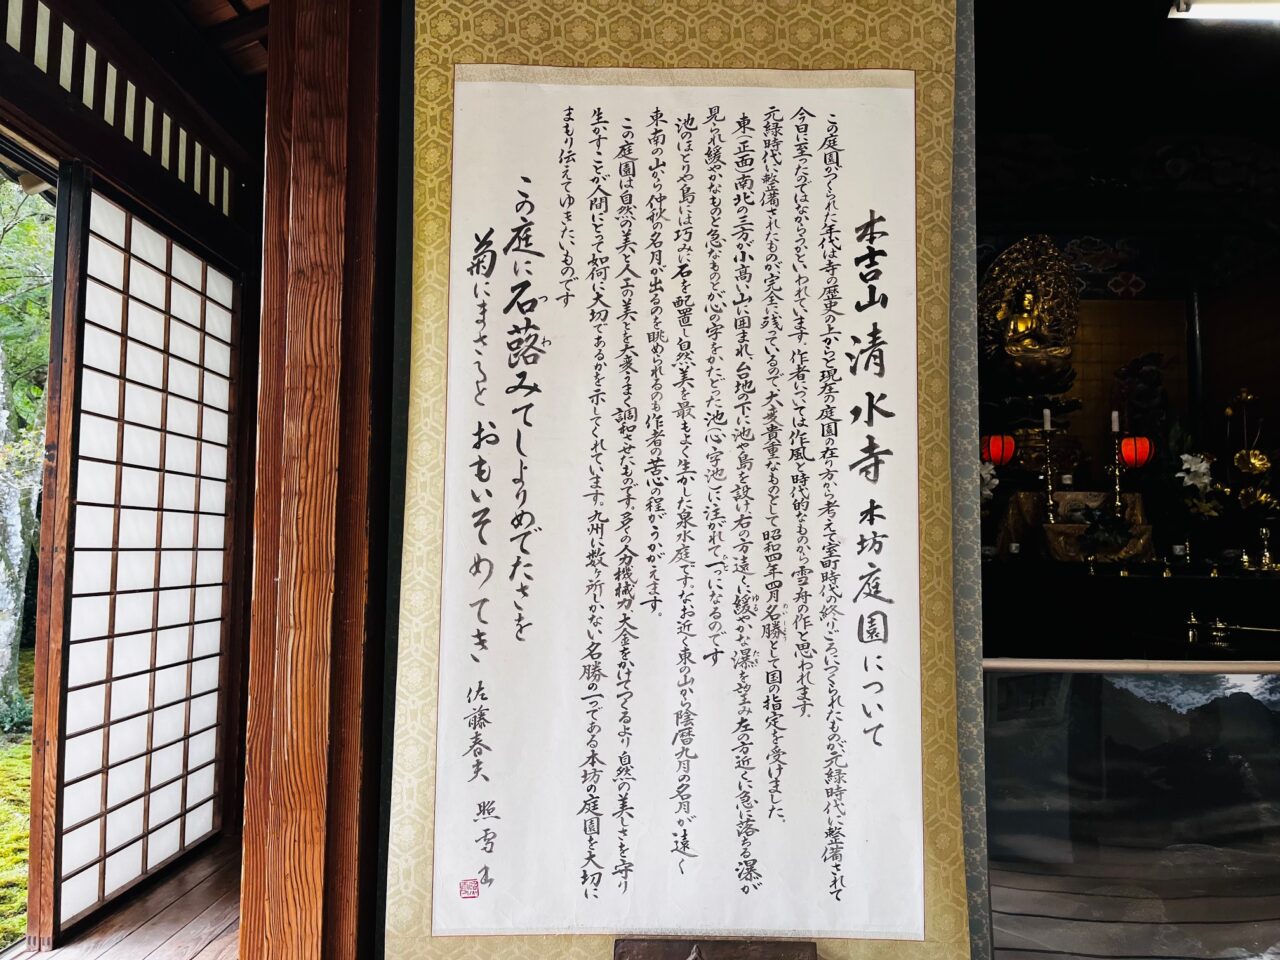 本吉山 清水寺 本坊庭園について
この庭園がつくられた年代は寺の歴史の上からと現在の庭園の在り方から考えて室町時代の終りごろにつくられたものが、元緑時代に整備されて
今日に至ったのではなかろうかといわれています。作者については作風と時代的なものから雪舟の作と思われます。
元緑時代に整備されたものが完全に残っているので、大変貴重なものとして昭和四年四月名勝として国の指定を受けました。
東(正面)南北の三方が小高い山に囲まれ、台地の下に池や島を設け右の方遠くに緩やかな瀑を望み左の方近くに急に落ちる瀑が
見られ緩やかなものと急なものとが心の字をかたどった池「心字池」に注がれて一つになるのです
池のほとりや島には巧みに石を配置し自然美を最もよく生かした泉水庭ですなお近く東の山から陰暦九月の名月が遠く
東南の山から仲秋の名月が出るのを眺められるのも作者の苦心の程がうかがえます。
この庭園は自然の美と人工の美とを大変うまく調和させたものです。多くの人力機械力大金をかけてつくるより自然の美しさを守り
生かすことが人間にとって如何に大切であるかを示してくれています。九州に数ヶ所しかない名勝の一つである本坊の庭園を大切に
まもり伝えてゆきたいものです
この庭に石蕗みてしよりめでたさを
菊にまさると おもいそめてき 佐藤春夫 照雪